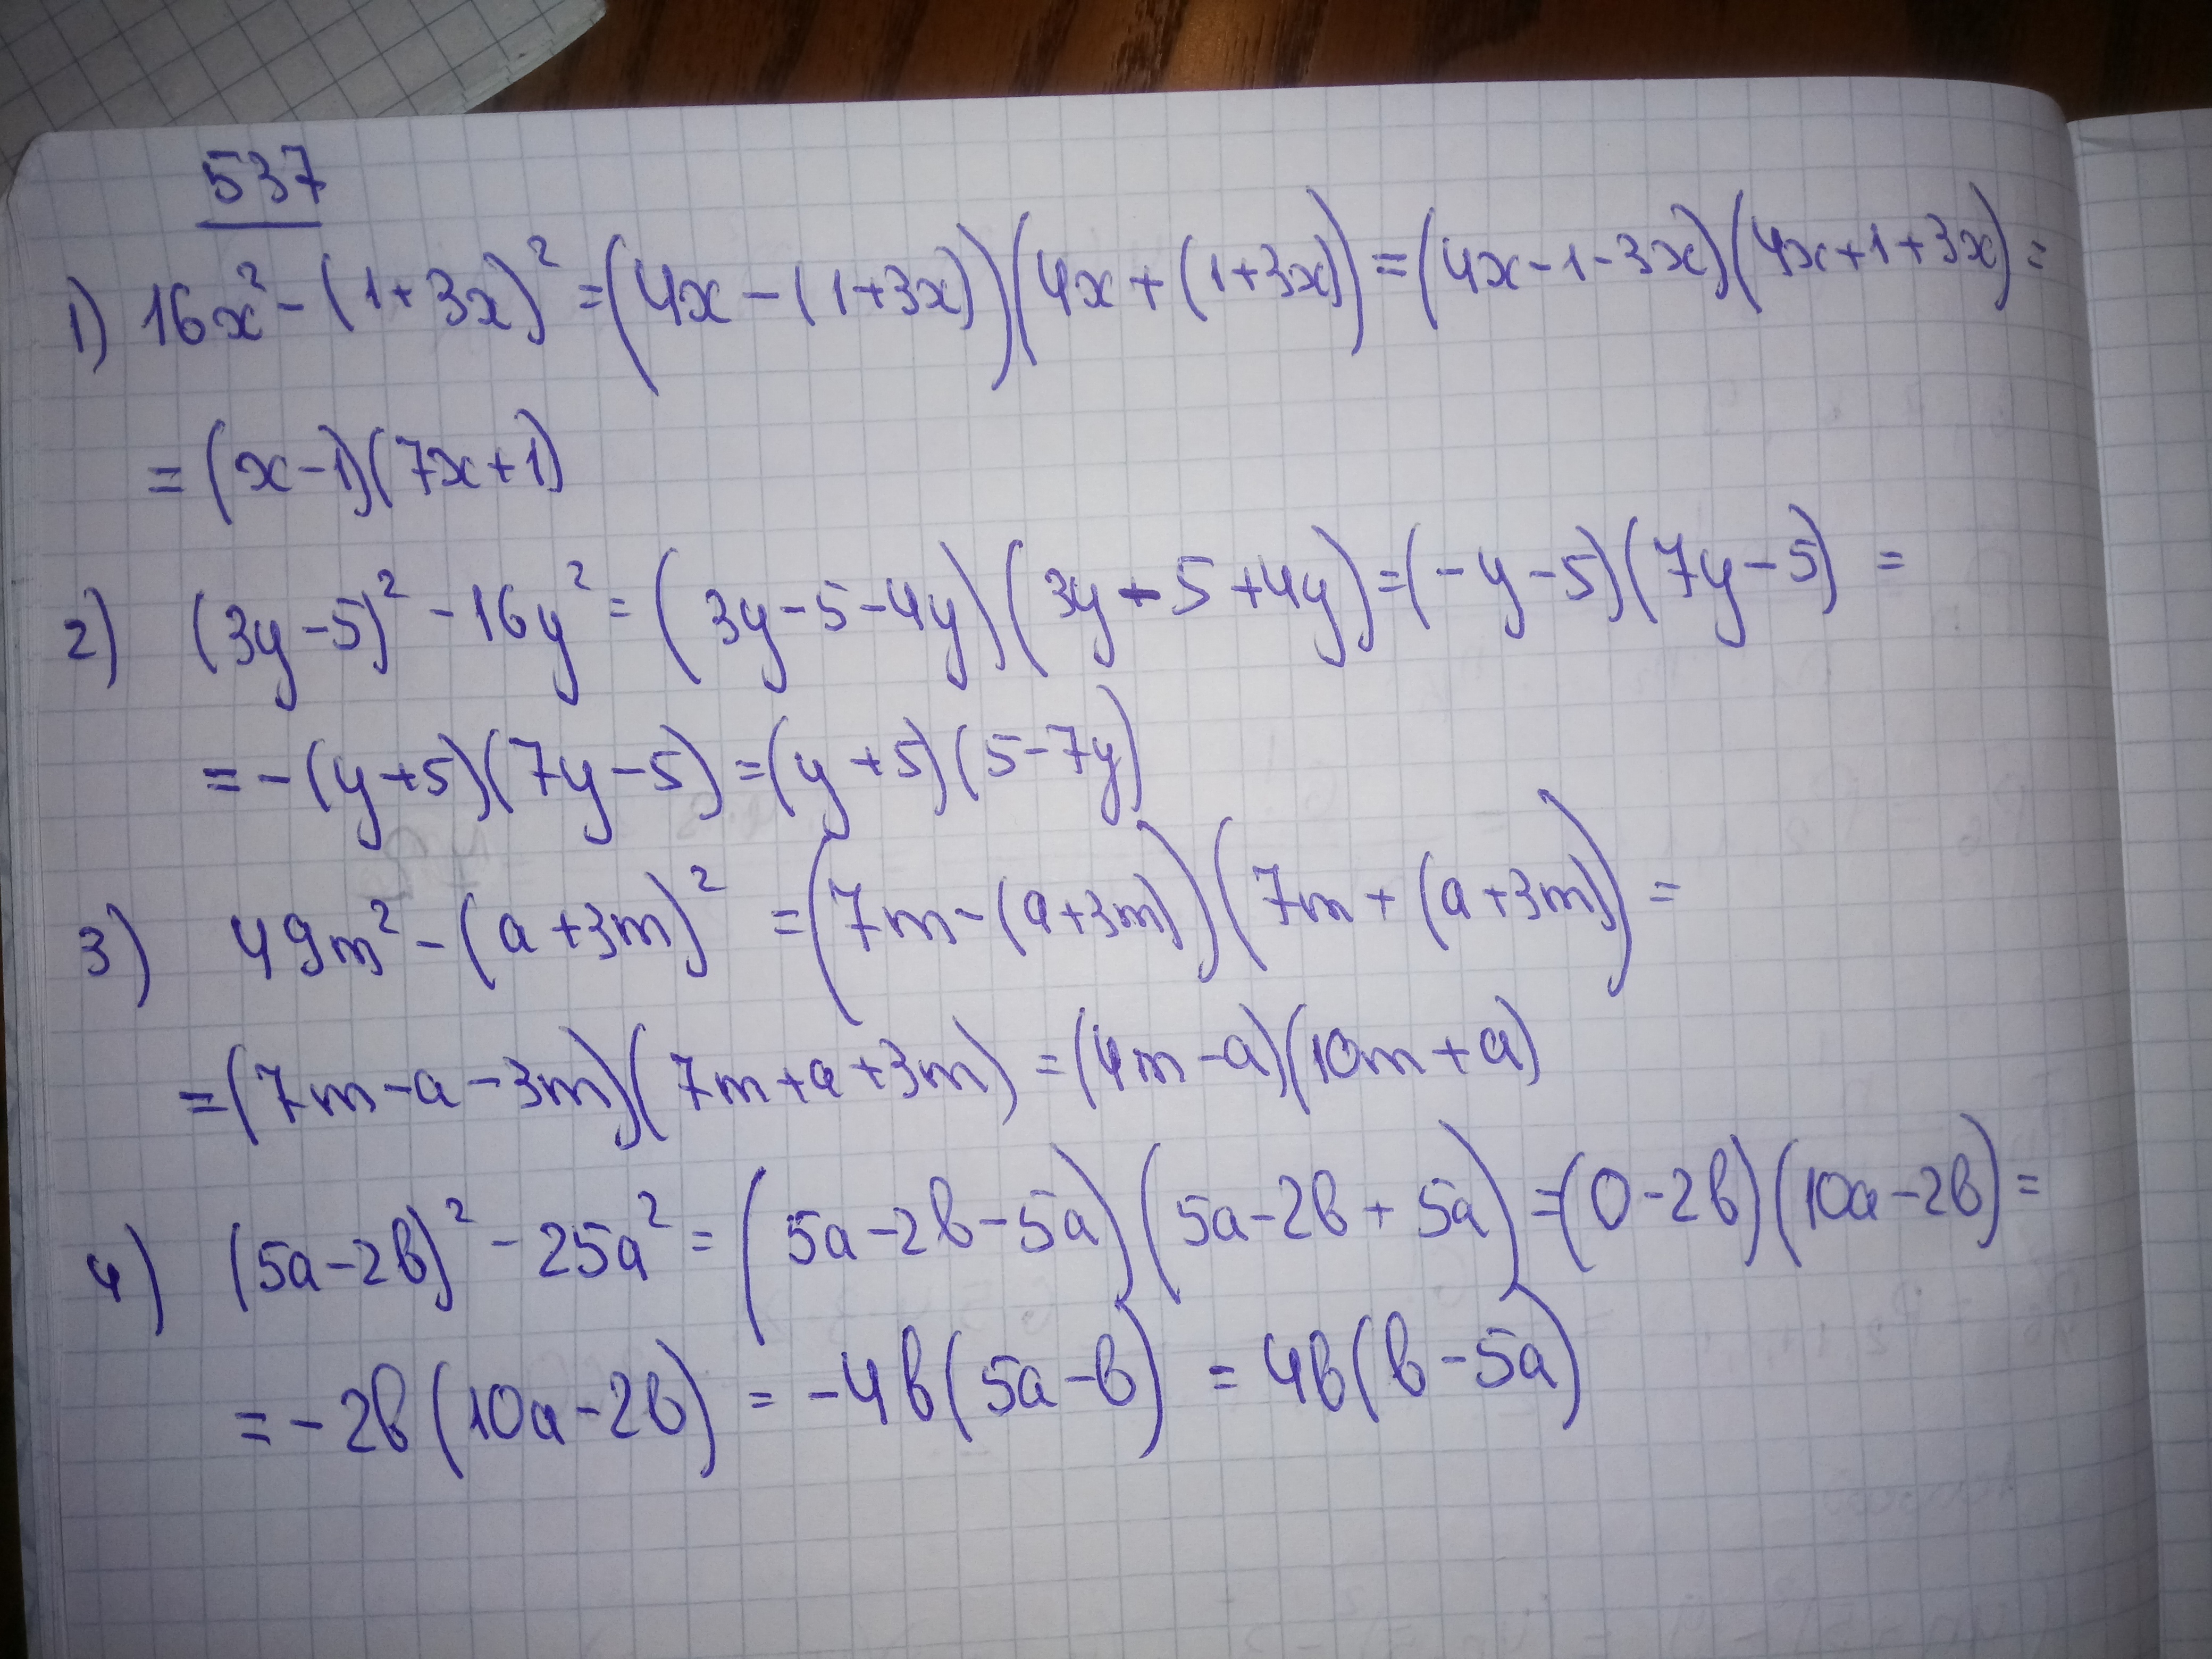 537
1) 16x² - (1+3x)² = (4x - (1+3x))(4x + (1+3x)) = (4x-1-3x)(4x+1+3x) =
= (x-1)(7x+1)
2) (3y-5)² - 16y² = (3y-5-4y)(3y-5+4y) = (-y-5)(7y-5) =
= -(y+5)(7y-5) = (y+5)(5-7y)
3) 49m² - (a+3m)² = (7m-(a+3m))(7m+(a+3m)) =
= (7m-a-3m)(7m+a+3m) = (4m-a)(10m+a)
4) (5a-2b)² - 25a² = (5a-2b-5a)(5a-2b+5a) = (0-2b)(10a-2b) =
= -2b(10a-2b) = -4b(5a-b) = 4b(b-5a)